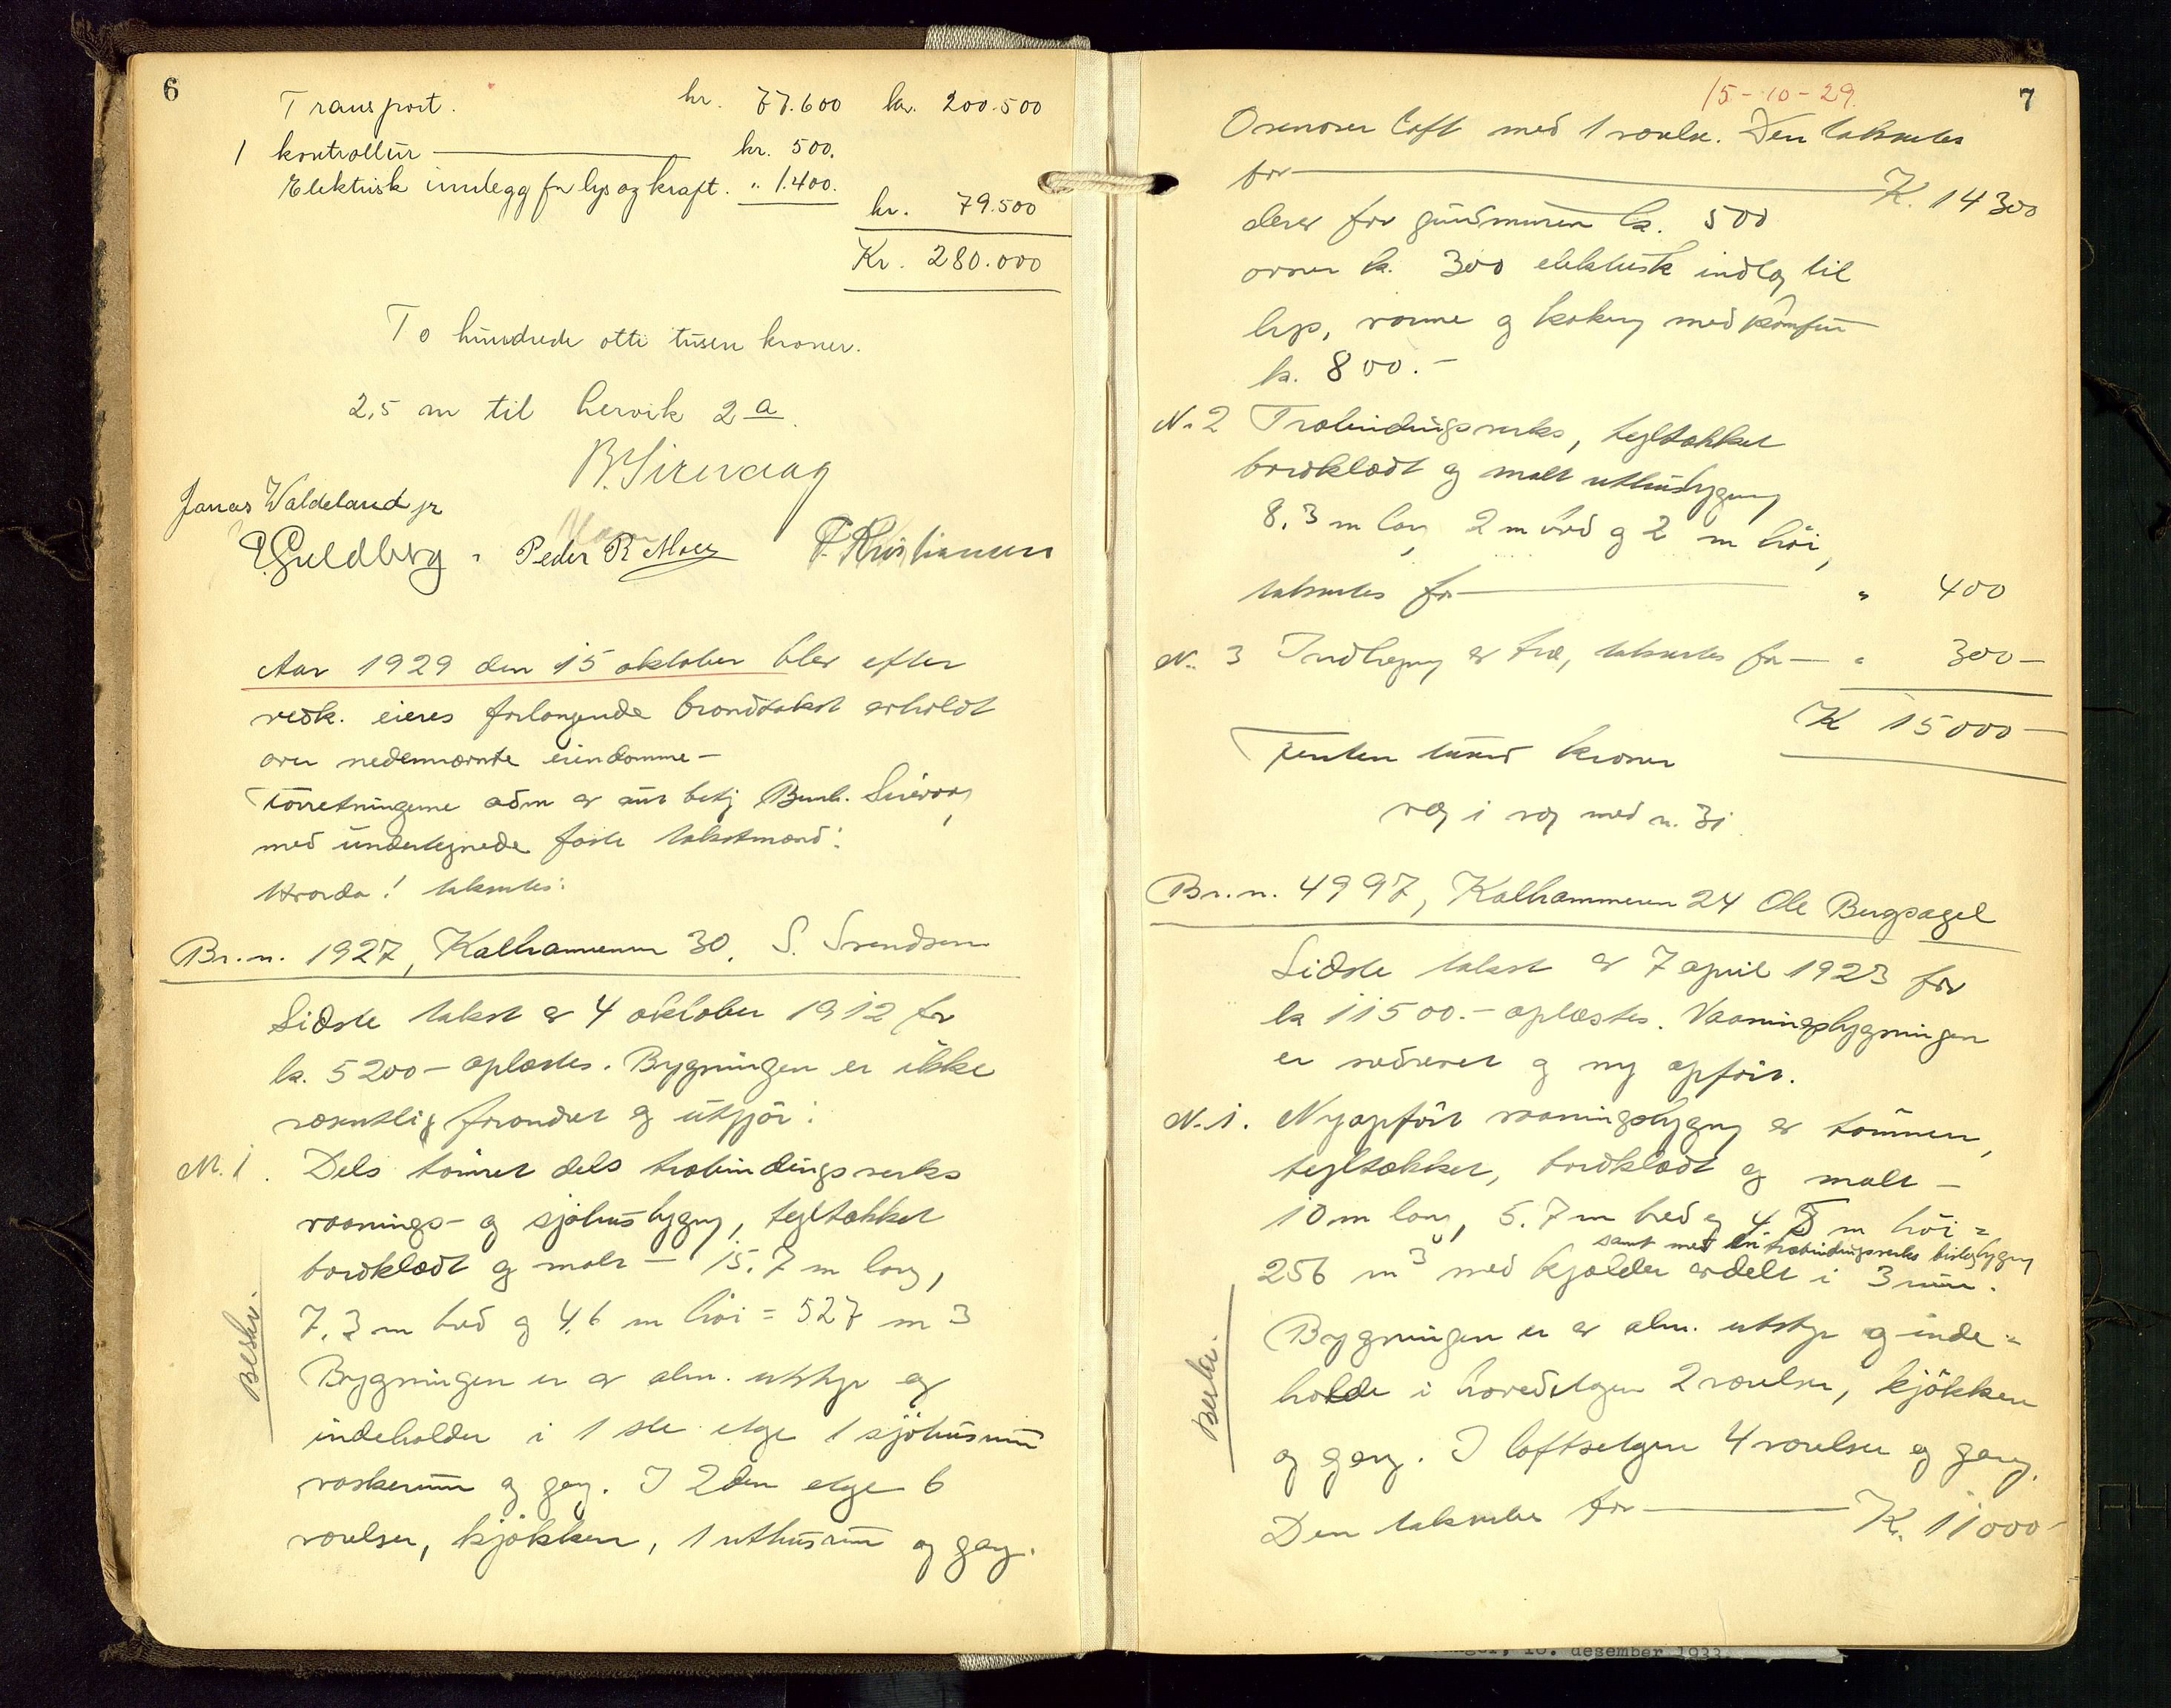 6
Transport. kr. 77.600 kr. 200.500
1 kontrollur kr. 500.
Elektrisk innlegg for lys og kraft. " 1.400.
kr. 79.500
Kr. 280.000
To hundrede otti tusen kroner.
2,5 m til hervik 2 a.
B. Sirevaag
Jonas Waldeland jr
E. Guldberg . Peder R Moe F. Kristiansen
Aar 1929 den 15 oktober blev efter
vedk. eieres forlangende brandtakst avholdt
over nedennævnte eiendomme –
Forretningerne adm av Bernh. Sirevaag,
med undertegnede faste takstmænd:
Hvorda! taksertes:
Br. n. 1927, Kalhammeren 30. S. Svendsen
Sidste takst av 4 oktober 1912 for
kr. 5200 – oplæstes. Bygningen er ikke
væsentlig forandret og utgjør:
N. 1. Dels tømret dels træbindingsverks
vaanings- og sjøhusbygng, tegltækket
bordklædt og malt – 15.7 m lang,
7.3 m bred og 4,6 m høi = 527 m 3
Beskr.
Bygningen er av alm. utstyr og
indeholder i 1ste etge 1 sjøhusrum
vaskerum og gang. I 2den etge 6
værelser, kjøkken, 1 uthusrum og gang.
15-10-29.
7
Ovenover loft med 1 værelse. Den taksertes
for K. 14300
derav for grundmuren kr. 500
ovner kr. 300 elektrisk indlæg til
lys, varme og kokng med komfur
kr. 800.–
N. 2 Træbindingsverks, tegltækket
bordklædt og malt uthusbygng
8,3 m lang 2 m bred og 2 m høi,
taksertes for " 400
N. 3 Indhegng av træ, taksertes for – " 300 –
K 15000 –
Femten tusend kroner
væg i væg med n. 31
Br. n. 4997, Kalhammeren 24 Ole Bergsagel
Sidste takst av 7 april 1923 for
kr 11500.– oplæstes. Vaaningsbygningen
er nedrevet og ny opført.
N. 1. Nyopført vaaningsbygng av tømmer,
tegltækket, bordklædt og malt –
10 m lang, 5.7 m bred og 4.5 m høi =
samt med en træbindingsverks bislagbygng
256 m3 med kjælder avdelt i 3 rum.
Beskr.
Bygningen er av alm. utstyr og inde=
holde i hovedetgen 2 værelser, kjøkken
og gang. I loftsetgen 4 værelser og gang.
Den taksertes for K. 11000 –
10. desember 1933